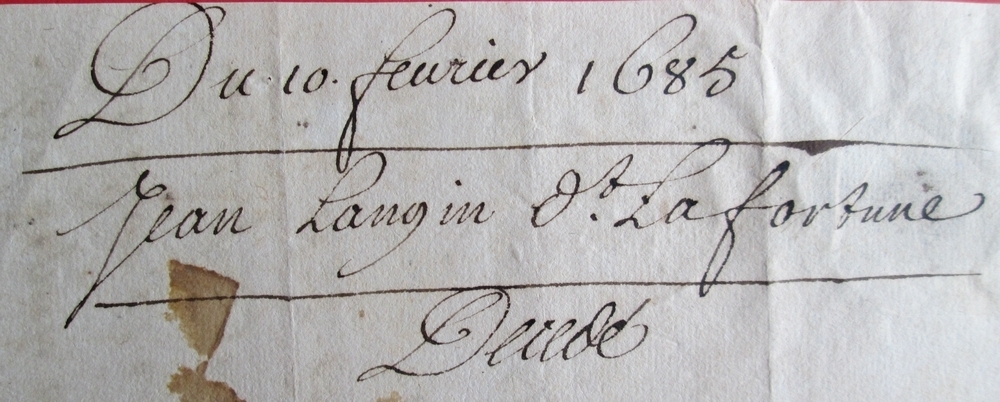 Du 10. feurier 1685
Jean Langin d.t La fortune
Decedé